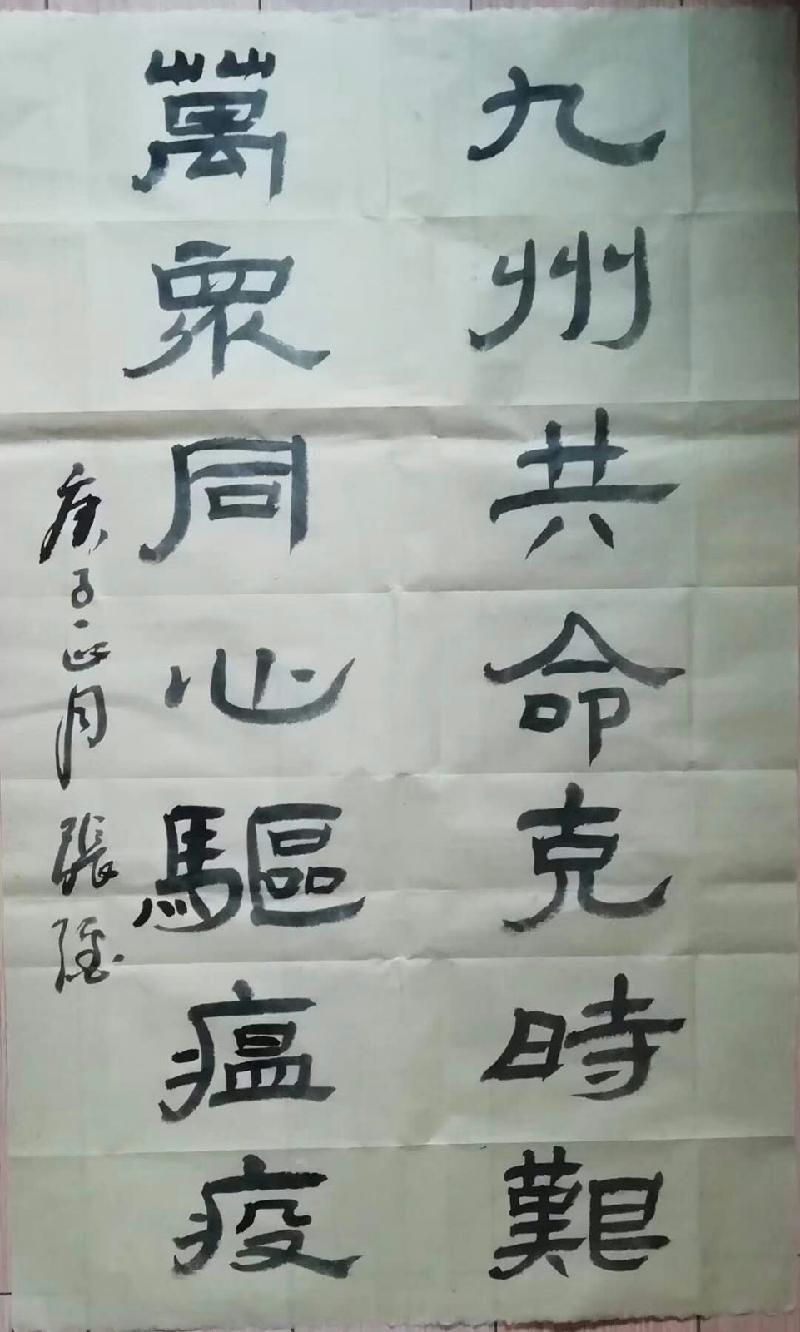 九州共命克時艱
萬眾同心驅瘟疫
庚子正月 張強